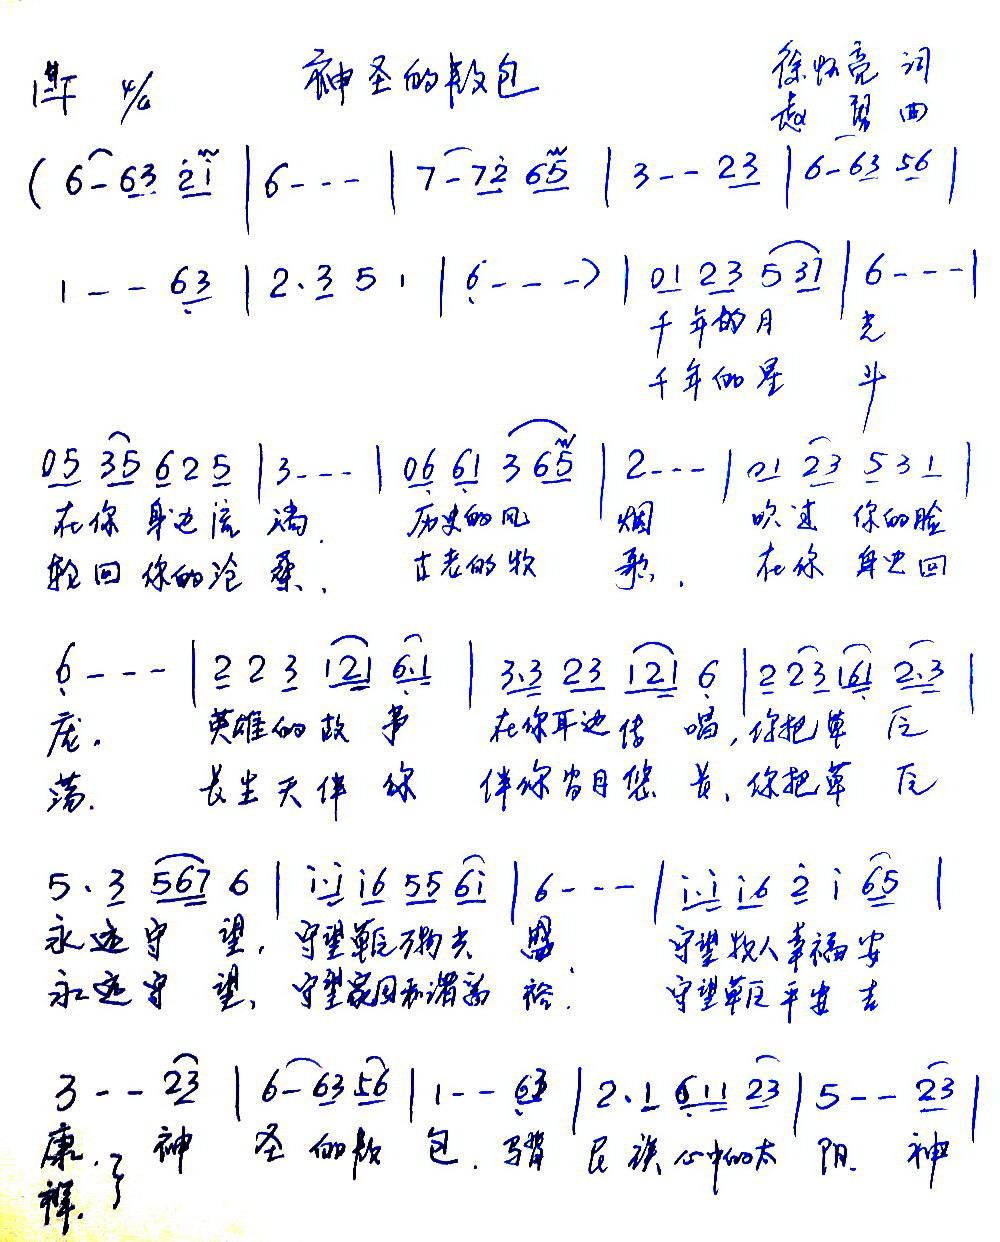 神圣的敖包
4/4
徐怀亮 词
曲
( 6 - 63 2i | 6 - - - | 7 - 72 65 | 3 - - 23 | 6 - 63 56 |
1 - - 63 | 2· 3 5 1 | 6 - - - ) | 01 23 5 37 | 6 - - - |
千年的月 光
千年的星 斗
05 35 6 2 5 | 3 - - - | 06 61 3 65 | 2 - - - | 01 23 5 3 1 |
在你 身边流 淌. 历史的风 烟 吹过 你的脸
轮回 你的沧 桑. 古老的牧 歌. 在你 身边回
6 - - - | 2 2 3 121 6·1 | 3·3 23 121 6 | 2 23 161 2·3 |
庞. 英雄的故 事 在你耳边传 唱, 你把草 原
荡. 长生天伴 你 伴你岁月悠 长, 你把草 原
5· 3 567 6 | i·i i6 55 6i | 6 - - - | i·i i6 2 i 65 |
永远守 望, 守望草原万物共 盟. 守望牧人幸福安
永远守 望, 守望家园和谐富 裕. 守望草原平安吉
3 - - 23 | 6 - 63 56 | 1 - - 63 | 2· 1 611 23 | 5 - - 23 |
康. 神 圣 的敖 包. 马背 民族心中的太 阳. 神
祥.